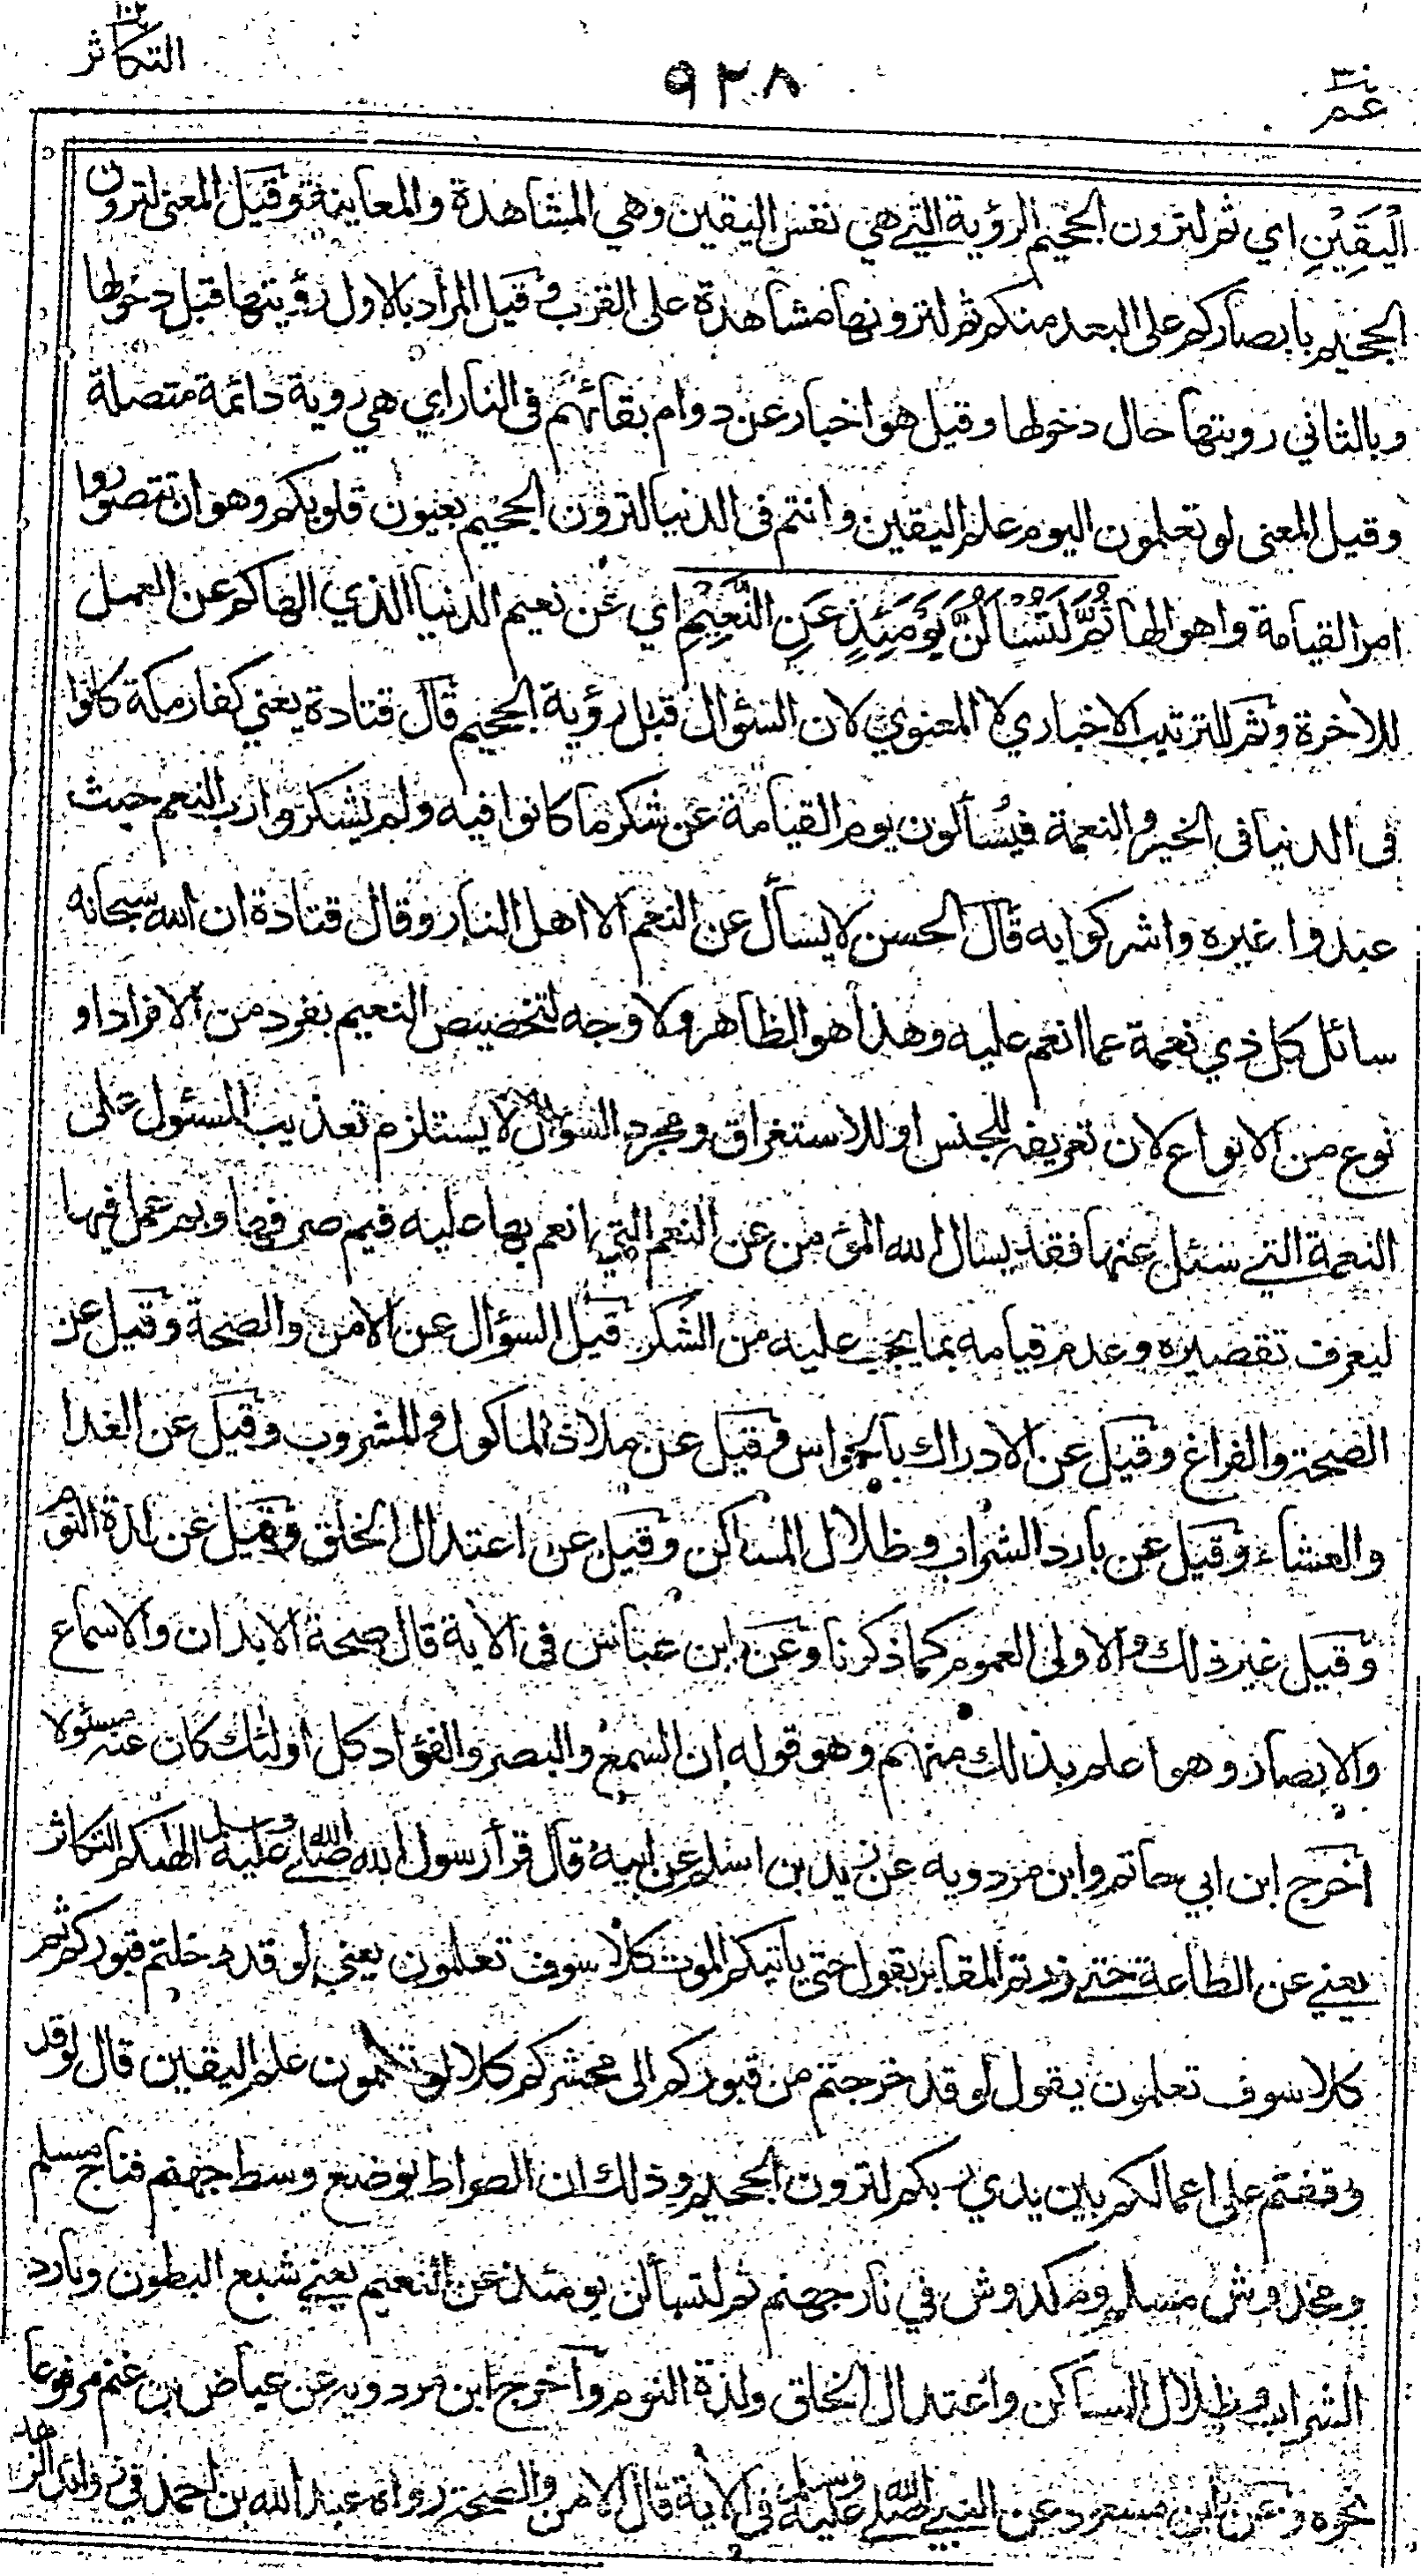 عم ٣٠
٩٢٨
التكاثر ١٠٢
الْيَقِيْنِ اي ثم لترون الجحيم الرؤية التي هي نفس اليقين وهي المشاهدة والمعاينة وقيل المعنى لترون
الجحيم بابصاركم على البعد منكم ثم لترونها مشاهدة على القرب وقيل المراد بالاول رؤيتها قبل دخولها
وبالثاني رويتها حال دخولها وقيل هو اخبار عن دوام بقائهم في النار اي هي روية دائمة متصلة
وقيل المعنى لو تعلمون اليوم علم اليقين وانتم في الدنيا لترون الجحيم بعيون قلوبكم وهو ان تتصوروا
امر القيامة واهوالها ثُمَّ لَتُسْأَلُنَّ يَوْمَئِذٍ عَنِ النَّعِيْمِ اي عن نعيم الدنيا الذي الهاكم عن العمل
للأخرة وثم للترتيب الاخباري لا المعنوي لان السؤال قبل رؤية الجحيم قال قتادة يعني كفار مكة كانوا
في الدنيا في الخير والنعمة فيسألون يوم القيامة عن شكر ما كانوا فيه ولم يشكروا رب النعم حيث
عبدوا غيره واشركوا به قال الحسن لا يسأل عن النعم الا اهل النار وقال قتادة ان الله سبحانه
سائل كل ذي نعمة عما انعم عليه وهذا هو الظاهر ولا وجه لتخصيص النعيم بفرد من الافراد او
نوع من الانواع لان تعريفه للجنس او للاستغراق ومجرد السؤال لا يستلزم تعذيب المسئول على
النعمة التي سئل عنها فقد يسال الله المؤمن عن النعم التي انعم بها عليه فيم صرفها وبم عمل فيها
ليعرف تقصيره وعدم قيامه بما يجب عليه من الشكر قيل السؤال عن الامن والصحة وقيل عن
الصحة والفراغ وقيل عن الادراك بالحواس وقيل عن ملاذ المأكول والمشروب وقيل عن الغدا
والعشاء وقيل عن بارد الشراب وظلال المساكن وقيل عن اعتدال الخلق وقيل عن لذة النوم
وقيل غير ذلك والاولى العموم كما ذكرنا وعن ابن عباس في الأية قال صحة الابدان والاسماع
والابصار وهو اعلم بذلك منهم وهو قوله ان السمع والبصر والفؤاد كل اولئك كان عنه مسئولا
اخرج ابن ابي حاتم وابن مردويه عن زيد بن اسلم عن ابيه قال قرأ رسول الله صلى الله عليه وسلم الهاكم التكاثر
يعني عن الطاعة حتى زرتم المقابر يقول حتى ياتيكم الموت كلا سوف تعلمون يعني لو قد دخلتم قبوركم ثم
كلا سوف تعلمون يقول لو قد خرجتم من قبوركم الى محشركم كلا لو تعلمون علم اليقين قال لو قد
وقفتم على اعمالكم بين يدي ربكم لترون الجحيم وذلك ان الصراط يوضع وسط جهنم فناج مسلم
ومخدوش مسلم ومكدوش في نار جهنم ثم لتسألن يومئذ عن النعيم يعني شبع البطون وبارد
الشراب وظلال المساكن واعتدال الخلق ولذة النوم وأخرج ابن مردويه عن عياض بن غنم مرفوعا
نحوه وعن ابن مسعود عن النبي صلى الله عليه وسلم في الأية قال الامن والصحة رواه عبد الله بن احمد في زوائد الزهد